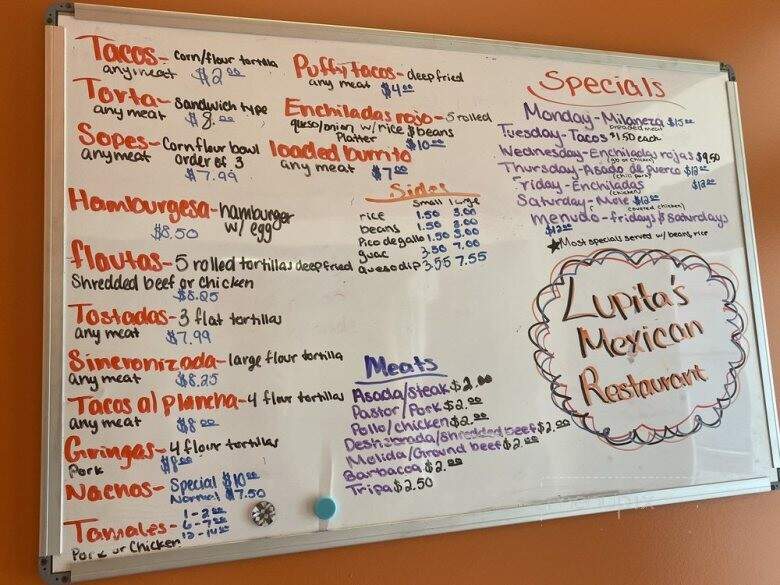 Tacos- corn/flour tortilla
any meat $2.00
Torta- Sandwich type
any meat $8.00
Sopes- Corn flour bowl
any meat order of 3
$7.99
Hamburgesa- hamburger
$8.50 w/ egg
flautas- 5 rolled tortillas deep fried
Shredded beef or Chicken
$8.25
Tostadas- 3 flat tortillas
any meat $7.99
Sincronizada- large flour tortilla
any meat $8.25
Tacos al plancha- 4 flour tortillas
any meat $8.00
Gringas- 4 flour tortillas
Pork $8.00
Nachos- Special $10.00
Normal $7.50
Tamales- 1-2.00
6-7.00
Pork or Chicken 12-14.00
Puffy tacos- deep fried
any meat $4.00
Enchiladas rojo- 5 rolled
queso/onion w/ rice & beans
Platter $10.00
loaded burrito
any meat $7.00
Sides
Small Large
rice 1.50 3.00
beans 1.50 3.00
Pico de gallo 1.50 3.00
guac 3.50 7.00
queso dip 3.55 7.55
Meats
Asada/steak $2.00
Pastor/Pork $2.00
Pollo/chicken $2.00
Deshebrada/shredded beef $2.00
Molida/Ground beef $2.00
Barbacoa $2.00
Tripa $2.50
Specials
Monday- Milaneza $15.00
breaded meat
Tuesday- Tacos $1.50 each
Wednesday- Enchiladas rojas $9.50
Thursday- Asado de puerco $12.00
(chili pork)
friday- Enchiladas $12.00
(chicken)
Saturday- Mole $12.00
(covered chicken)
menudo- fridays & saturdays
$12.00
★Most specials served w/ beans, rice
Lupita's
Mexican
Restaurant